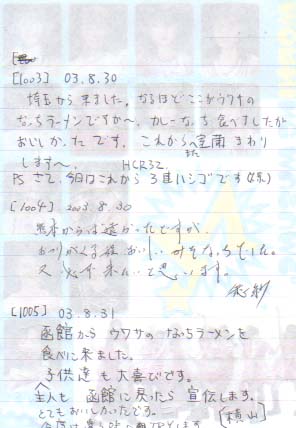 [1003] 03.8.30
埼玉から来ました。なるほどここがウワサの
なっちラーメンですか〜。カレーなっち食べましたが
おいしかったです。これからまた室蘭まわり
します〜。 HCR32
PS さて、今日はこれから3直ハシゴです(笑)
[1004] 2003.8.30
熊本からは遠かったですが、
おいしい みそなっちでした。
又、必ず来たいと思います。
[1005] 03.8.31
函館からウワサのなっちラーメンを
食べに来ました。
子供達も大喜びです。
主人も函館に戻ったら宣伝します。
とてもおいしかったです。
[横山]